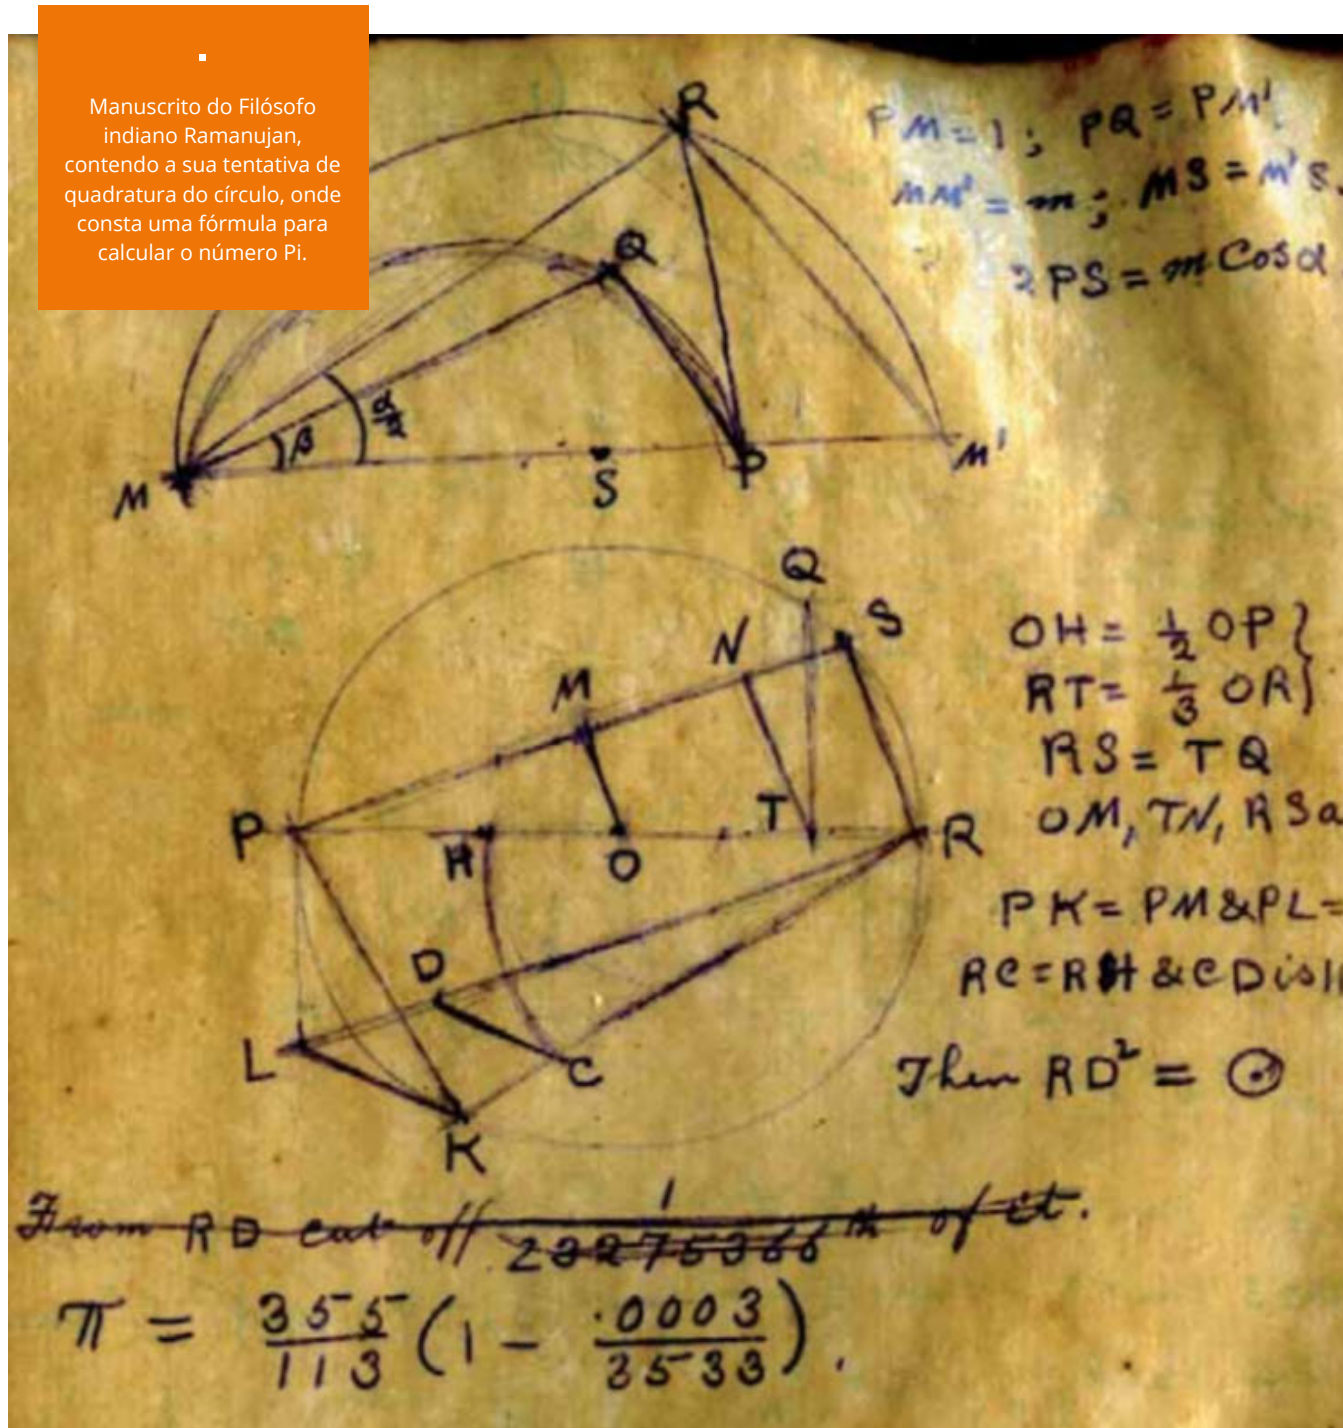 Manuscrito do Filósofo
indiano Ramanujan,
contendo a sua tentativa de
quadratura do círculo, onde
consta uma fórmula para
calcular o número Pi.
PM = 1 ; PQ = PM'
MM' = m ; MS = M'S.
2PS = m Cos α
R
Q
β
α/2
M
S
P
M'
Q
S
N
M
P
H
O
T
R
D
L
C
K
OH = 1/2 OP }
RT = 1/3 OR }
RS = TQ
OM, TN, RS a
PK = PM & PL =
RC = RH & CD is ||
Then RD² = ⊙
From RD cut off 1/23275366 th of it.
π = 355/113 (1 - .0003/3533).